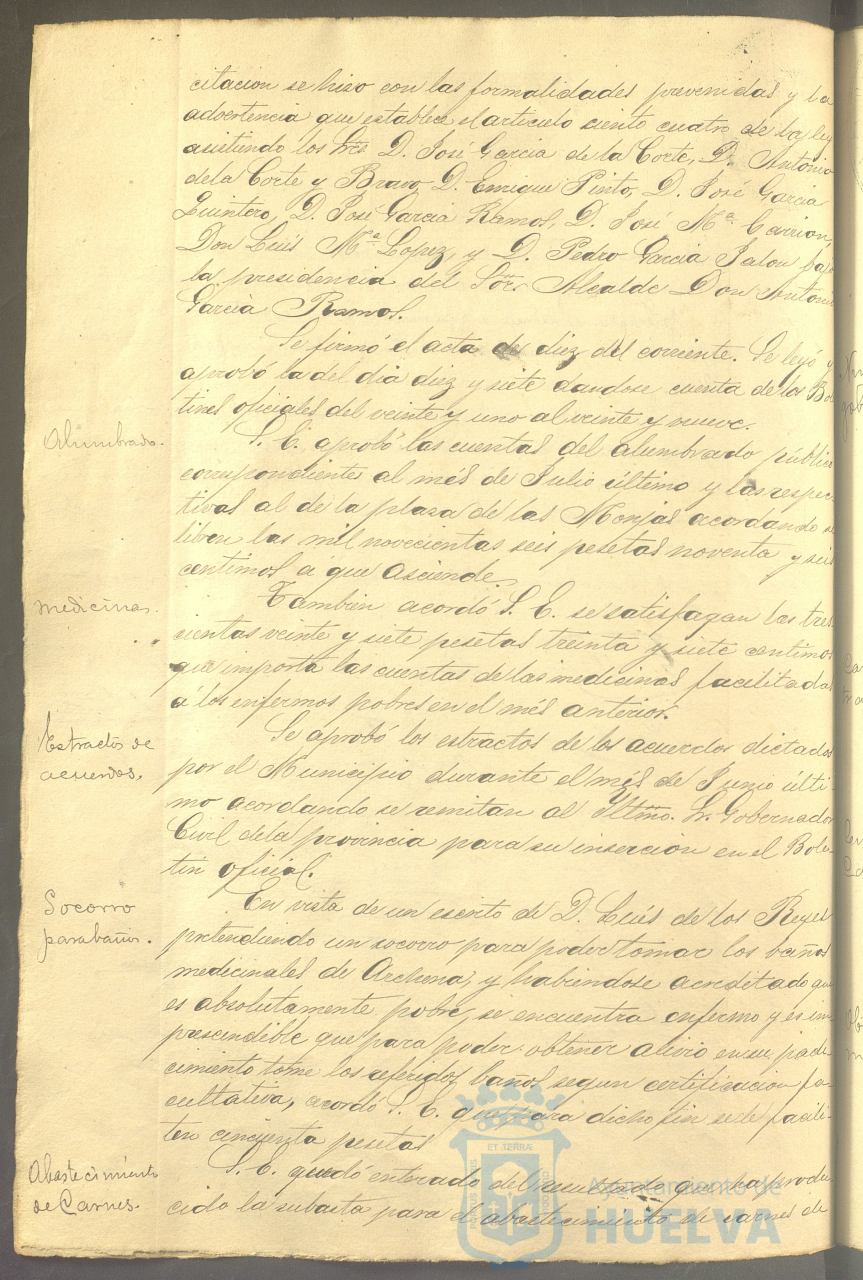 citacion se hizo con las formalidades prevenidas y la
advertencia que establece el articulo ciento cuatro de la ley
asistiendo los Sres D. José Garcia de la Corte, D. Antonio
de la Corte y Bravo, D. Enrique Pinto, D. José Garcia
Quintero, D. José Garcia Ramos, D. José Mª Carrion,
Don Luis Mª Lopez, y D. Pedro Garcia Jalon bajo
la presidencia del Sor. Alcalde Don Antonio
Garcia Ramos.
Se firmó el acta de diez del corriente. Se leyó y
aprobó la del dia diez y siete dandose cuenta de los Bole
tines oficiales del veinte y uno al veinte y nueve.
Alumbrado.
S. E. aprobó las cuentas del alumbrado público
correspondiente al més de Julio último y las respec
tivas al de la plaza de las Monjas acordando se
libren las mil novecientas seis pesetas noventa y seis
centimos a que asciende.
medicinas.
Tambien acordó S. E. se satisfagan las tres
cientas veinte y siete pesetas treinta y siete centimos
que importa las cuentas de las medicinas facilitadas
á los enfermos pobres en el més anterior.
Estractos de
acuerdos.
Se aprobó los estractos de los acuerdos dictados
por el Municipio durante el més de Junio últi-
mo acordando se remitan al Yltmo. Sr. Gobernador
Civil de la provincia para su insercion en el Bole-
tin oficial.
Socorro
para baños.
En vista de un escrito de D. Luis de los Reyes
pretendiendo un socorro para poder tomar los baños
medicinales de Archena, y habiendose acreditado que
es absolutamente pobre, se encuentra enfermo y es im
prescindible que para poder obtener alivio en su pade
cimiento tome los referidos baños segun certificacion fa-
cultativa, acordó S. E. que para dicho fin se le facili-
ten cincuenta pesetas
Abastecimiento
de Carnes.
S. E. quedó enterado del resultado que ha produ
cido la subasta para el abastecimiento de carnes de
ET TERRÆ
Ayuntamiento de
HUELVA